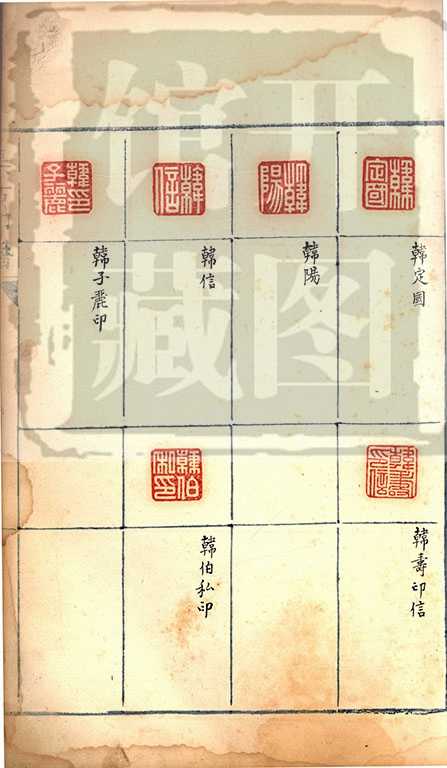 韓定國
韓陽
韓信
韓子麗印
韓壽印信
韓伯私印
开图
馆藏